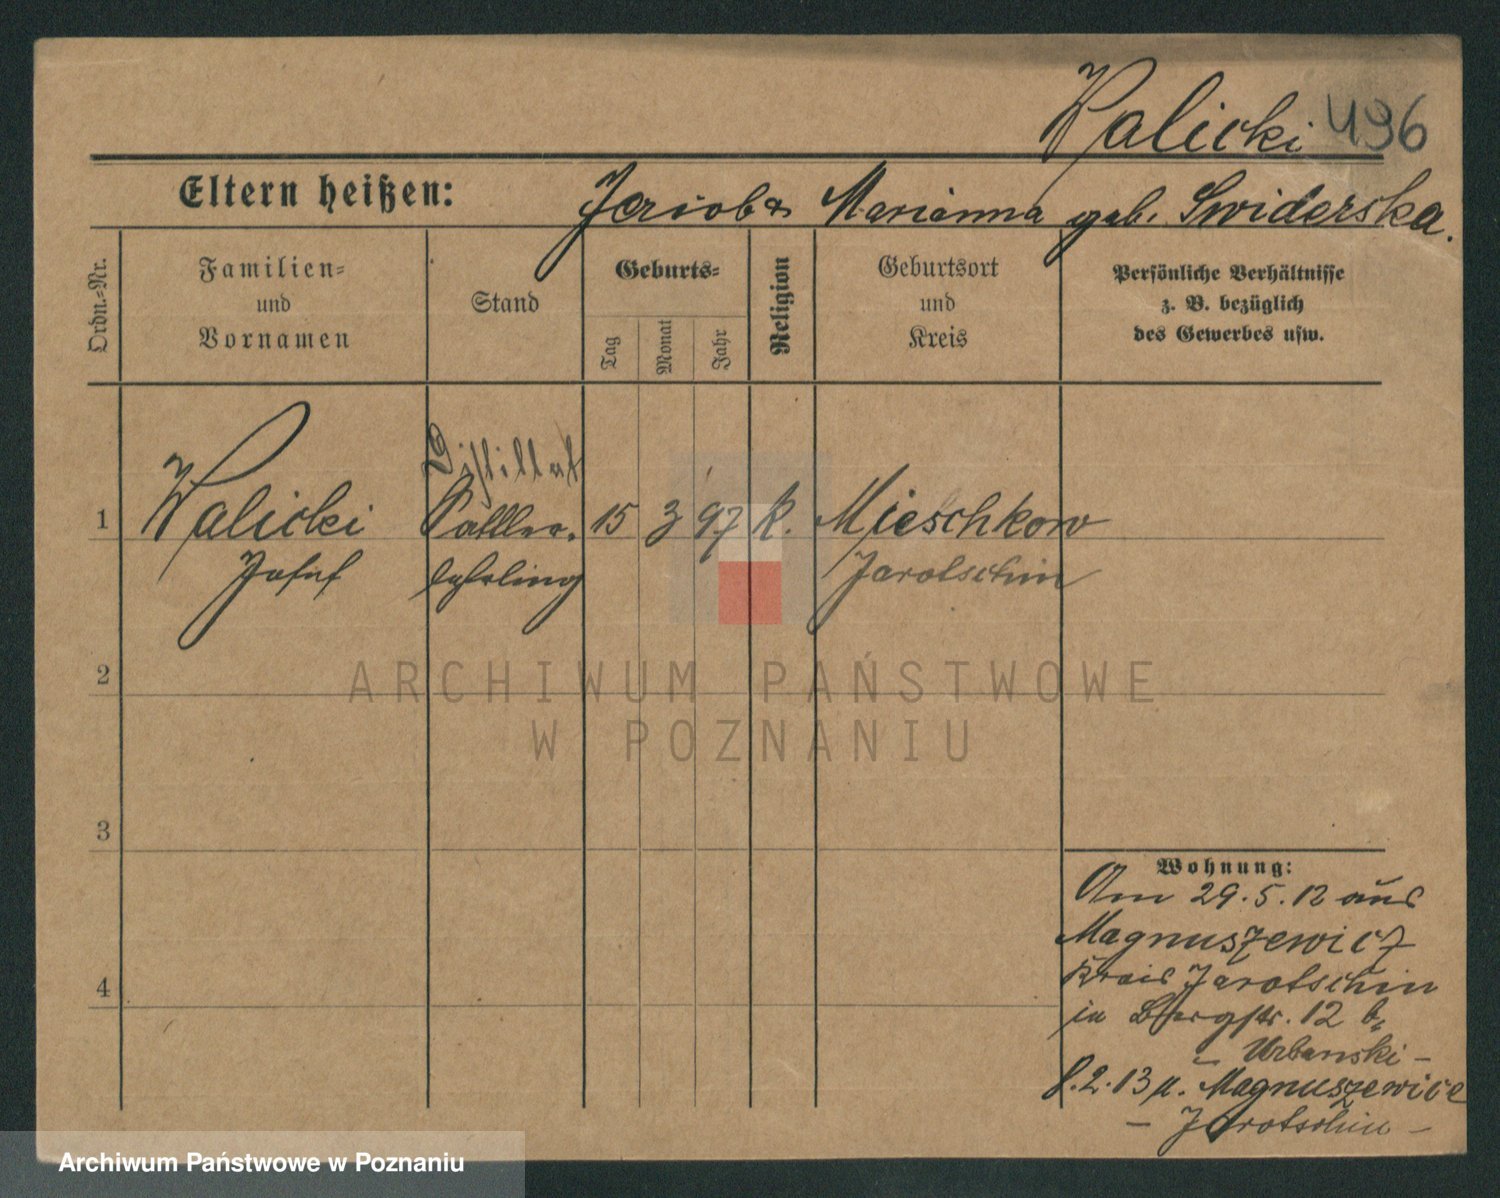 Walicki 496
Eltern heißen: Jakob & Marianna geb. Swiderska.
Ordn.=Nr.
Familien=
und
Vornamen
Stand
Geburts=
Tag
Monat
Jahr
Religion
Geburtsort
und
Kreis
Persönliche Verhältnisse
z. B. bezüglich
des Gewerbes usw.
Distillat
1 Walicki Sattler= 15 3 97 K. Mieschkow
Josef lehrling Jarotschin
2
3
4
Wohnung:
Am 29.5.12 aus
Magnuszewicz
Kreis Jarotschin
in Bergstr. 12 b.
- Urbanski -
8.2.13 n. Magnuszewice
- Jarotschin -
ARCHIWUM PAŃSTWOWE
W POZNANIU
Archiwum Państwowe w Poznaniu